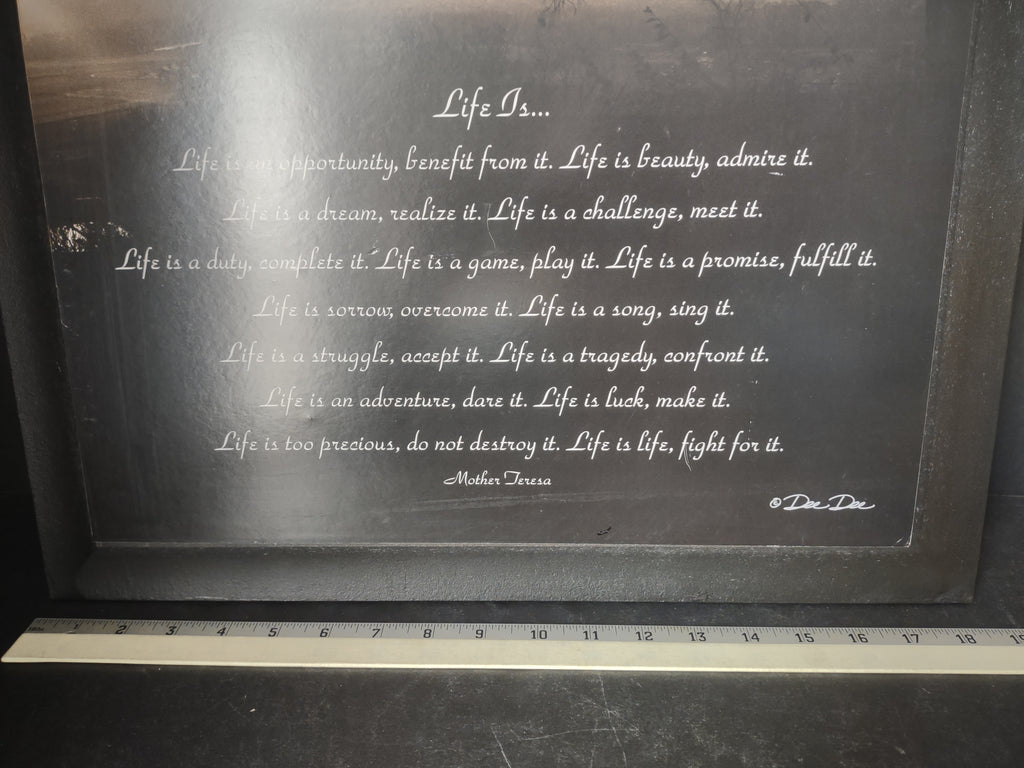 Life Is...
Life is an opportunity, benefit from it. Life is beauty, admire it.
Life is a dream, realize it. Life is a challenge, meet it.
Life is a duty, complete it. Life is a game, play it. Life is a promise, fulfill it.
Life is sorrow, overcome it. Life is a song, sing it.
Life is a struggle, accept it. Life is a tragedy, confront it.
Life is an adventure, dare it. Life is luck, make it.
Life is too precious, do not destroy it. Life is life, fight for it.
Mother Teresa
© Dee Dee
1 2 3 4 5 6 7 8 9 10 11 12 13 14 15 16 17 18 19